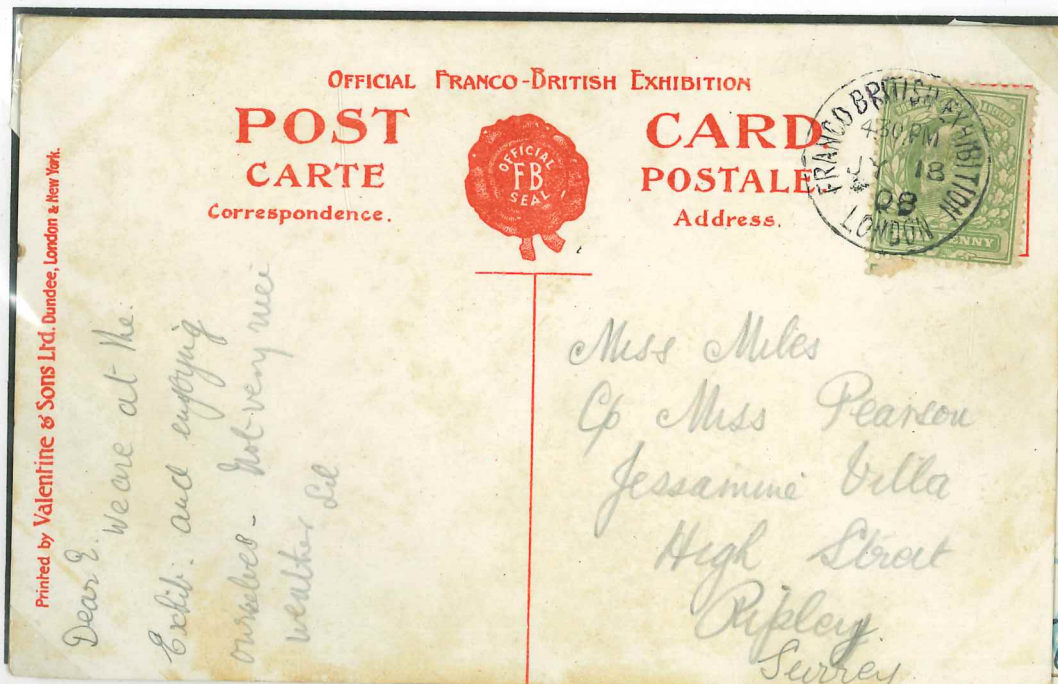 OFFICIAL FRANCO-BRITISH EXHIBITION
POST CARD
CARTE POSTALE
Correspondence.
Address.
OFFICIAL
FB
SEAL
FRANCO BRITISH EXHIBITION
4.30 PM
JY 18
08
LONDON
NNY
Printed by Valentine & Sons Ltd. Dundee, London & New York.
Dear E. We are at the
Exhib: and enjoying
ourselves - Not very nice
weather Lil
Miss Miles
C/o Miss Pearson
Jessamine Villa
High Street
Ripley
Surrey